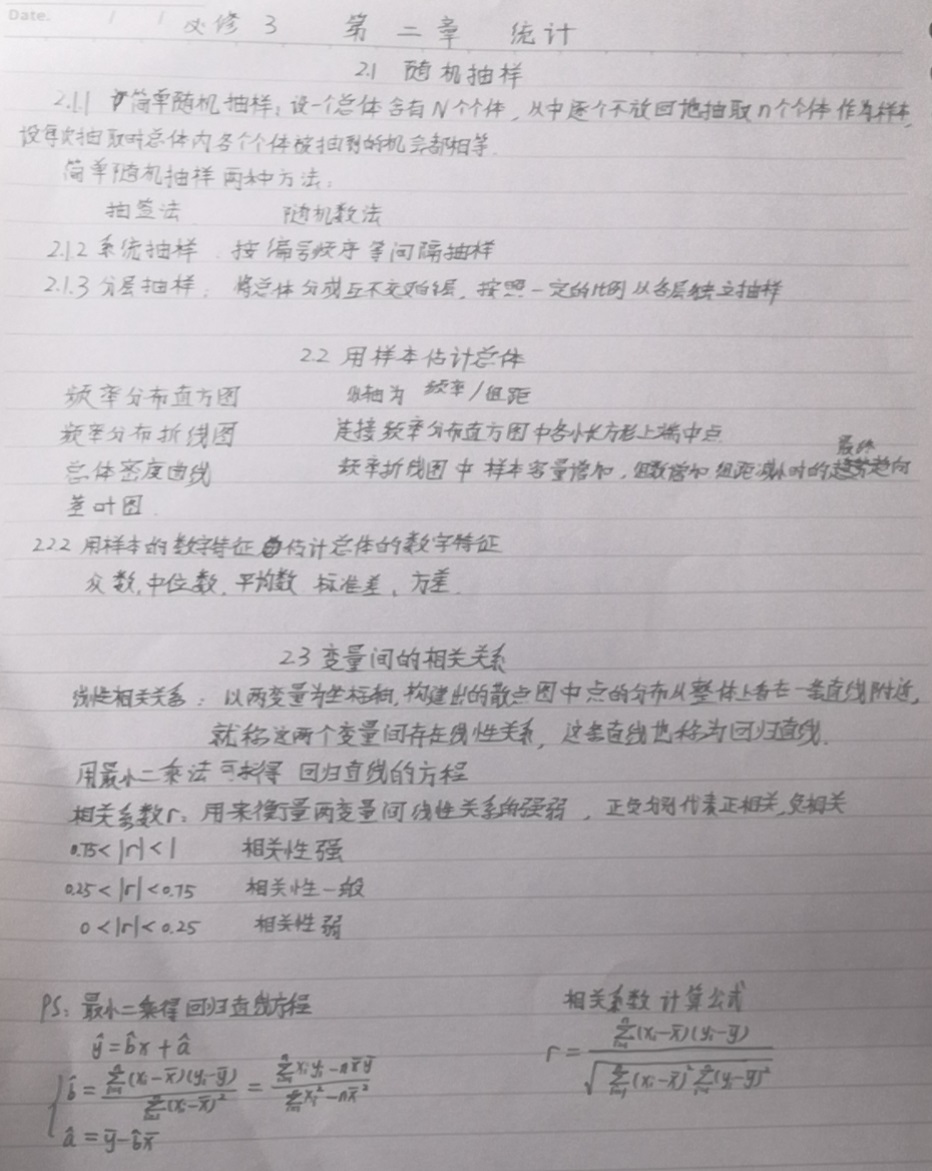 Date. / /
必修3 第二章 统计
2.1 随机抽样
2.1.1 简单随机抽样：设一个总体含有N个个体，从中逐个不放回地抽取n个个体作为样本，
设每次抽取时总体内各个个体被抽到的机会都相等.
简单随机抽样两种方法：
抽签法 随机数法
2.1.2 系统抽样：按编号顺序等间隔抽样
2.1.3 分层抽样：将总体分成互不交叉的层，按照一定的比例从各层独立抽样
2.2 用样本估计总体
频率分布直方图 纵轴为 频率/组距
频率分布折线图 连接频率分布直方图中各小长方形上端中点
总体密度曲线 频率折线图中样本容量增加，组数增加 组距减小时的最终趋向
茎叶图
2.2.2 用样本的数字特征估计总体的数字特征
众数，中位数，平均数 标准差，方差.
2.3 变量间的相关关系
线性相关关系：以两变量为坐标轴，构建出的散点图中点的分布从整体上看在一条直线附近，
就称这两个变量间存在线性关系，这条直线也称为回归直线.
用最小二乘法可求得 回归直线的方程
相关系数r：用来衡量两变量间线性关系的强弱，正负分别代表正相关，负相关
0.75<|r|<1 相关性强
0.25<|r|<0.75 相关性一般
0<|r|<0.25 相关性弱
PS：最小二乘得回归直线方程 相关系数计算公式
ŷ=b̂x+â r=∑ⁿᵢ₌₁(xᵢ-x̄)(yᵢ-ȳ)/√(∑ⁿᵢ₌₁(xᵢ-x̄)²∑ⁿᵢ₌₁(yᵢ-ȳ)²)
b̂=∑ⁿᵢ₌₁(xᵢ-x̄)(yᵢ-ȳ)/∑ⁿᵢ₌₁(xᵢ-x̄)²=∑ⁿᵢ₌₁xᵢyᵢ-nx̄ȳ/∑ⁿᵢ₌₁xᵢ²-nx̄²
â=ȳ-b̂x̄